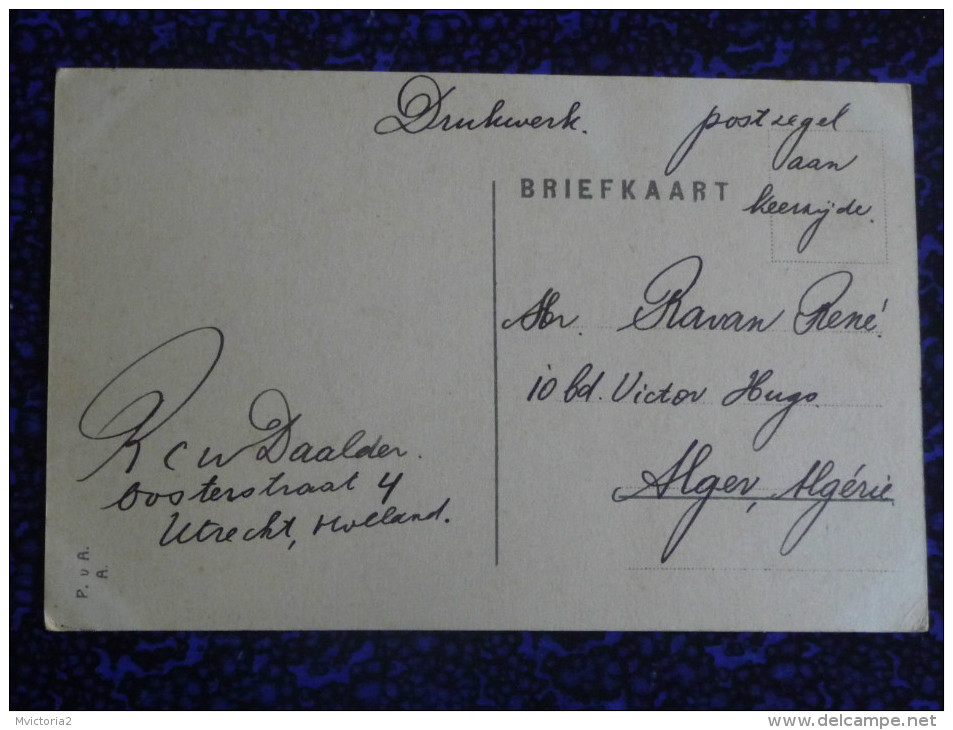 Drukwerk.
postzegel
aan
keerzijde.
BRIEFKAART
Mr. Ravan René
10 bd. Victor Hugo
Alger, Algérie
R C W Daalder.
Oosterstraat 4
Utrecht, Holland.
P. v A.
A.
Mvictoria2
delcampe.net